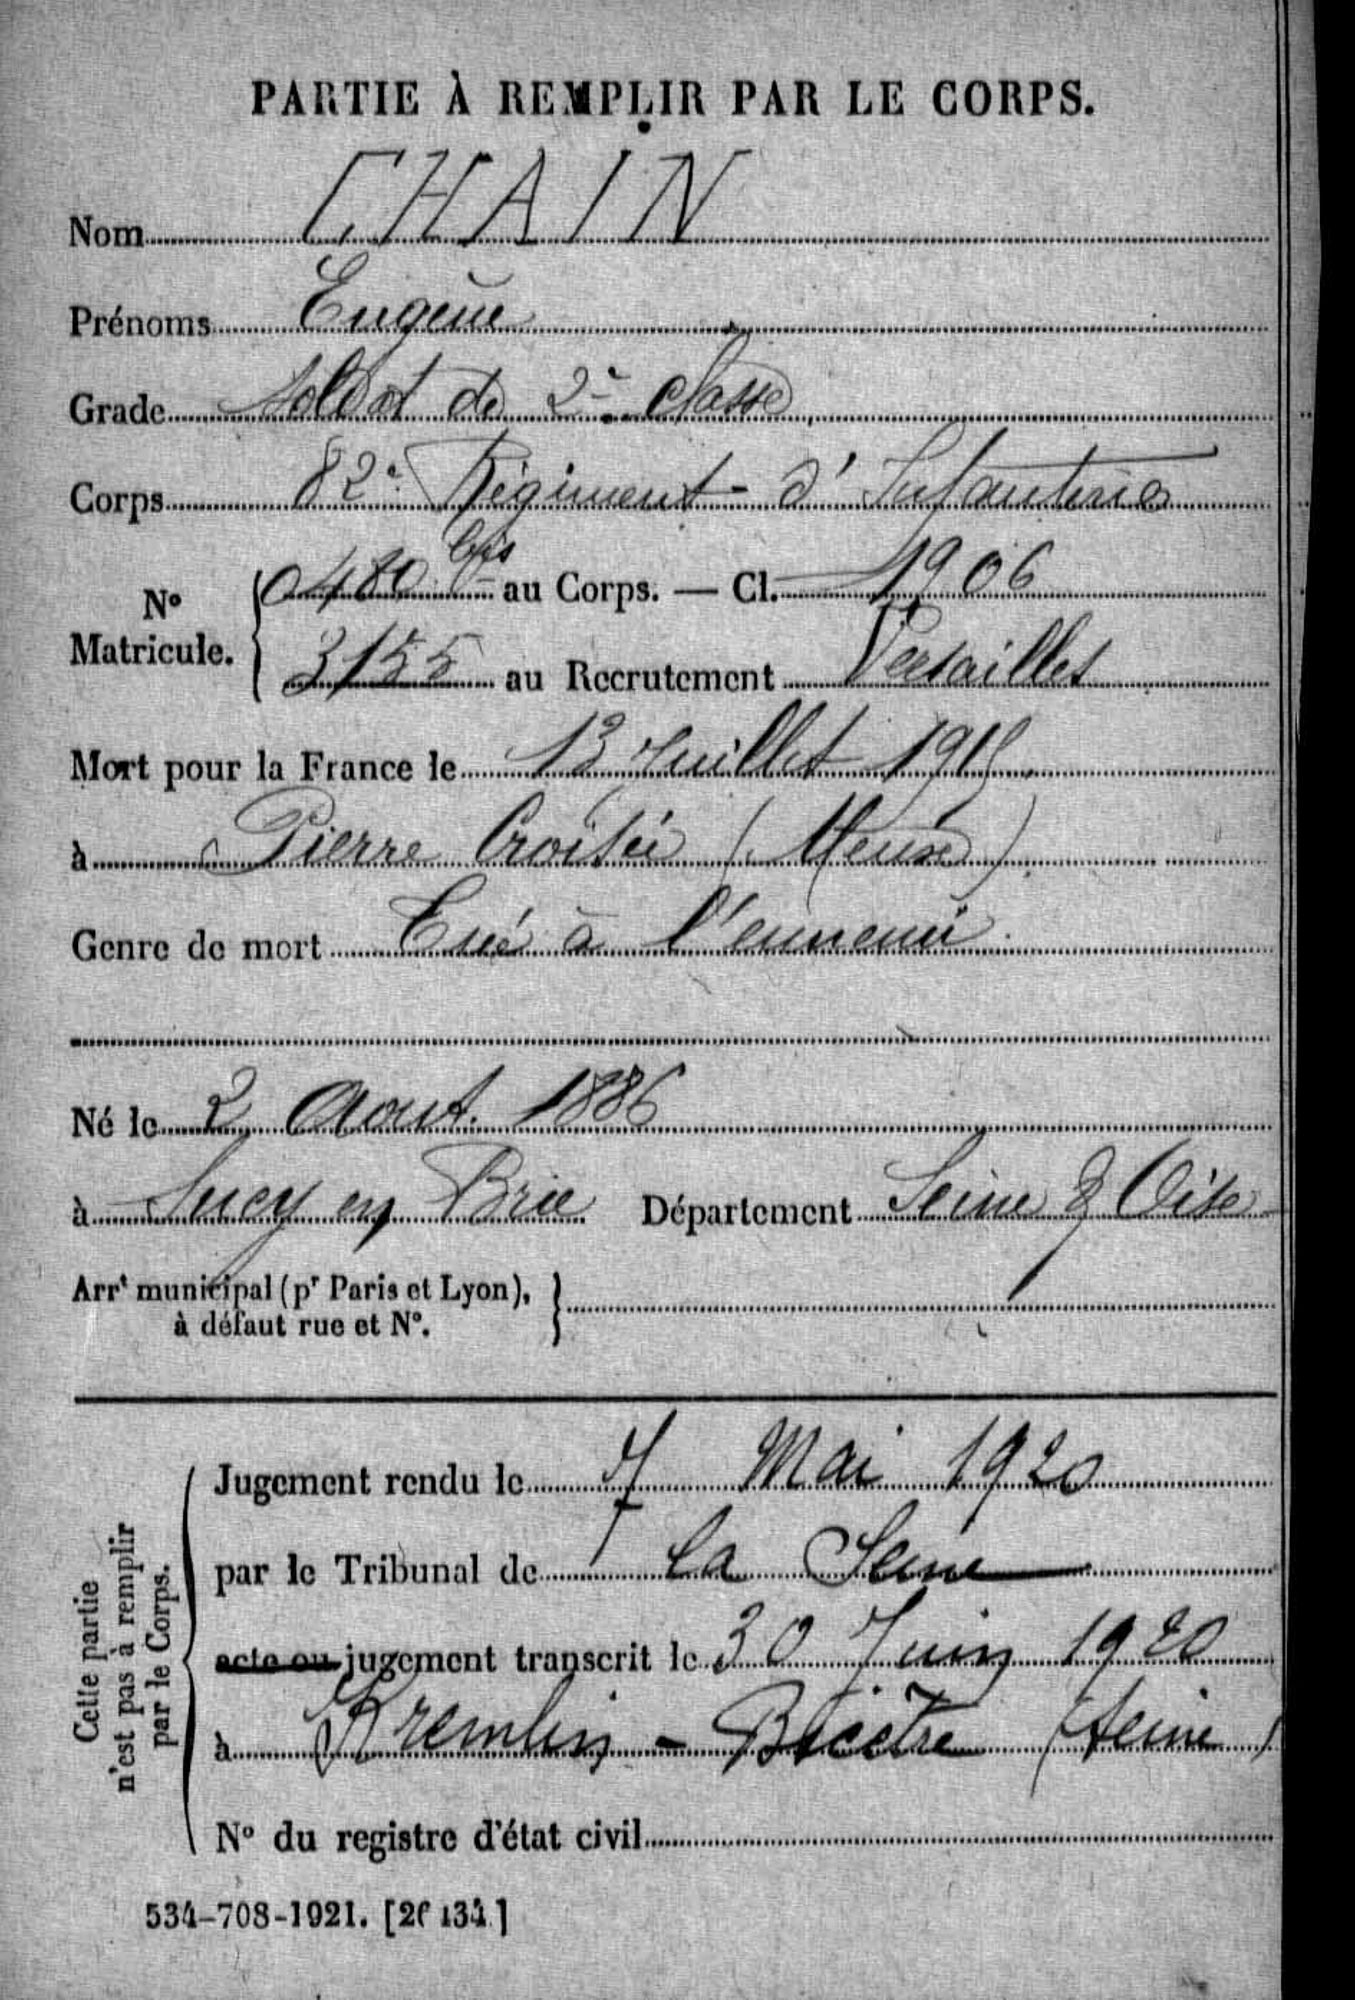 PARTIE À REMPLIR PAR LE CORPS.
Nom CHAIN
Prénoms Eugène
Grade Soldat de 2e classe
Corps 82e Régiment d'Infanterie
No Matricule. { 0480 bis au Corps. — Cl. 1906
3155 au Recrutement Versailles
Mort pour la France le 13 Juillet 1915
à Pierre Croisée (Meuse)
Genre de mort Tué à l'ennemi
Né le 2 Aout. 1886
à Sucy en Brie Département Seine & Oise
Arrt municipal (pr Paris et Lyon),
à défaut rue et No. }
Cette partie
n'est pas à remplir
par le Corps.
Jugement rendu le 7 Mai 1920
par le Tribunal de la Seine
acte ou jugement transcrit le 30 Juin 1920
à Kremlin-Bicêtre (Seine)
No du registre d'état civil
534-708-1921. [26134]